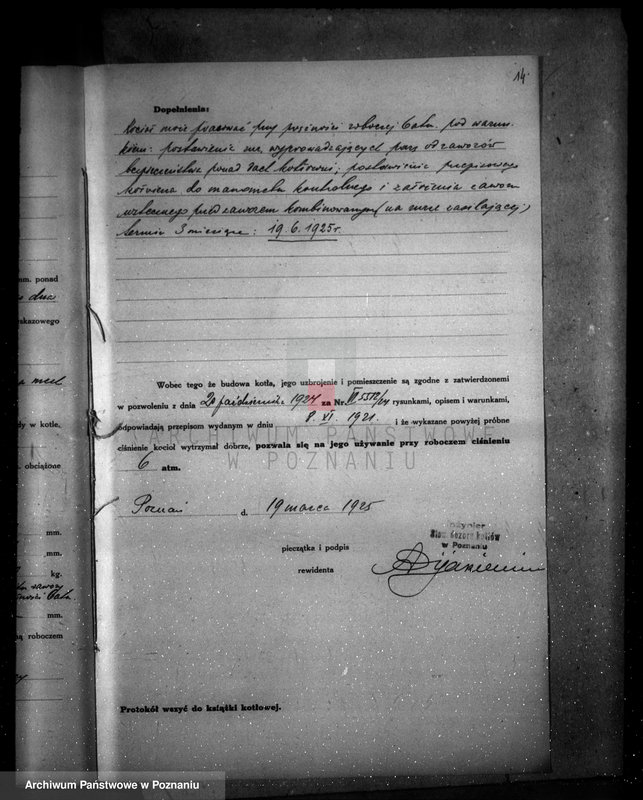 14.
Dopełnienia:
Kocioł może pracować przy prężności roboczej 6 atm. pod warun-
kiem: postawienia rur, wyprowadzających parę od zaworów
bezpieczeństwa ponad dach kotłowni; postawienia przepisowego
kołnierza do manometru kontrolnego i założenia zaworu
wstecznego pod zaworem kombinowanym (na rurze zasilającej.)
termin 3 miesiące: 19.6.1925 r.
Wobec tego że budowa kotła, jego uzbrojenie i pomieszczenie są zgodne z zatwierdzonemi
w pozwoleniu z dnia 20 październik 1924 za Nr. 5512/24 rysunkami, opisem i warunkami,
odpowiadają przepisom wydanym w dniu 8. XI. 1921. i że wykazane powyżej próbne
ciśnienie kocioł wytrzymał dobrze, pozwala się na jego używanie przy roboczem ciśnieniu
6 atm.
Poznań d. 19 marca 1925
pieczątka i podpis
rewidenta
Inżynier
Stow. dozoru kotłów
w Poznaniu
Protokół wszyć do książki kotłowej.
mm. ponad
dna
skazowego
dy w kotle.
obciążone
mm.
mm.
kg.
mm.
ną roboczem
ARCHIWUM PAŃSTWOWE
W POZNANIU
Archiwum Państwowe w Poznaniu